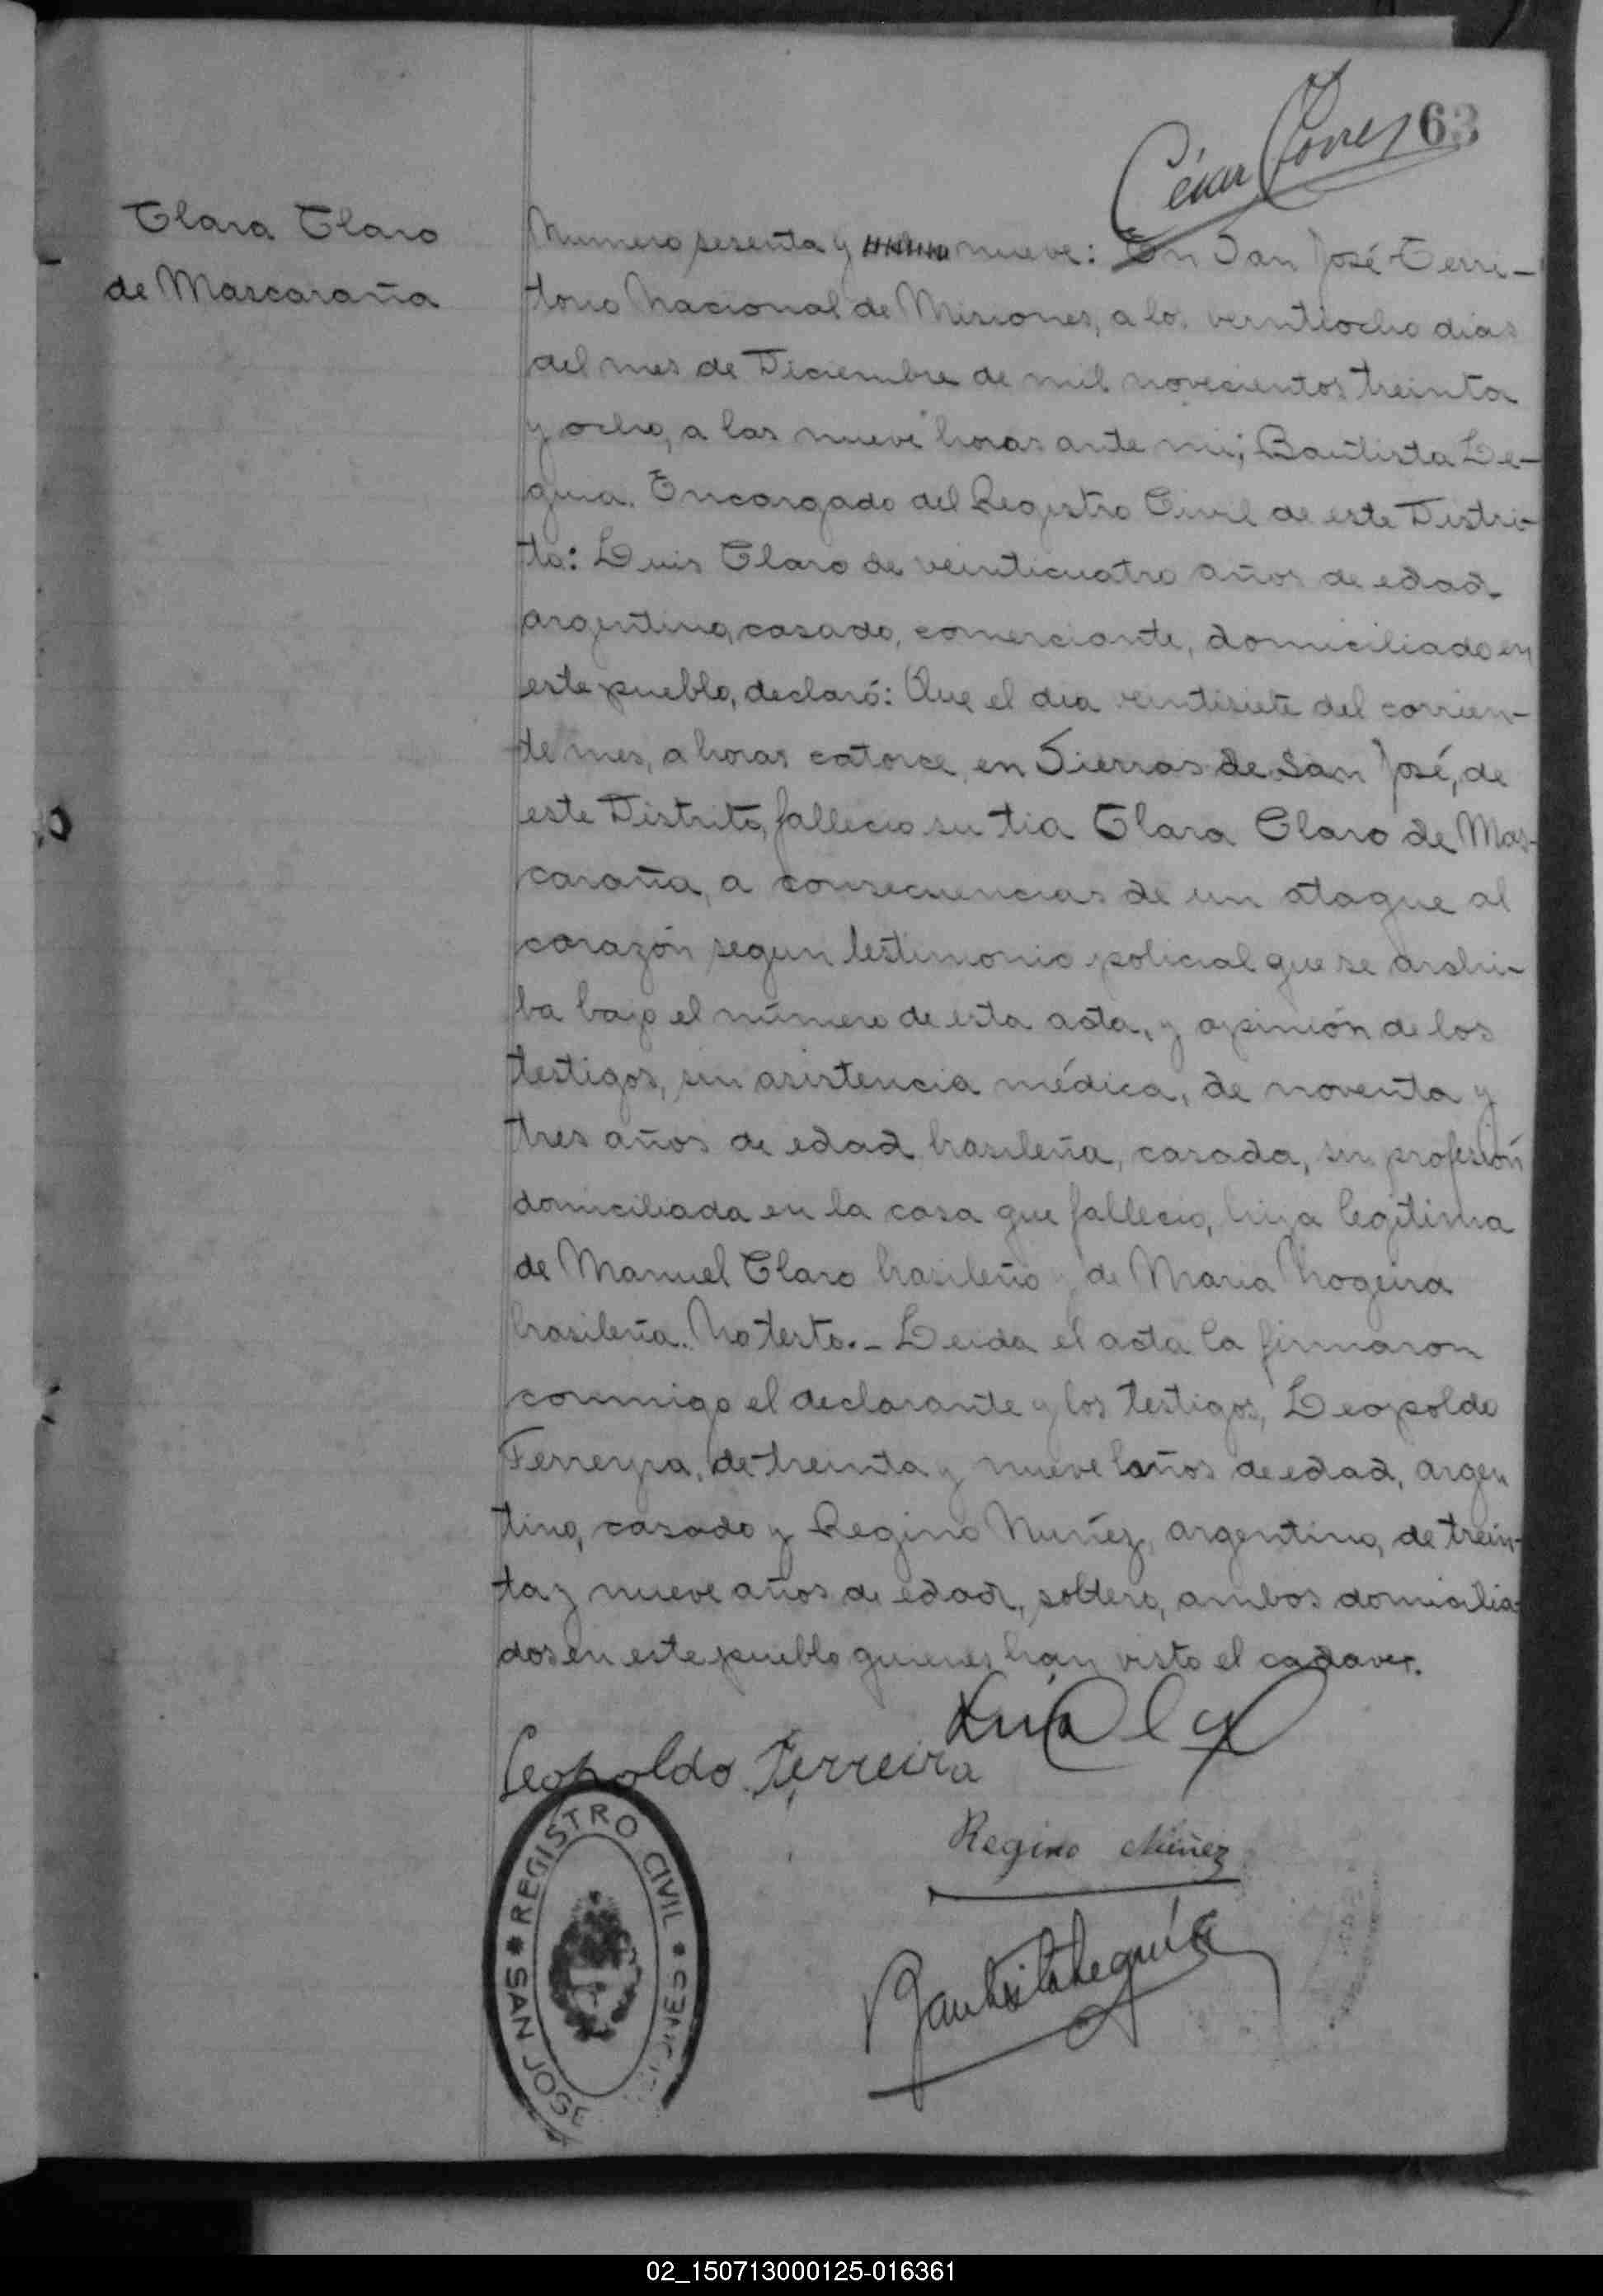 César Torres
63
Clara Claro
de Mascaraña
Numero sesenta y nueve: En San José Terri-
torio Nacional de Misiones, a los veintiocho dias
del mes de Diciembre de mil novecientos treinta
y ocho, a las nueve horas ante mi; Bautista Le-
guia. Encargado del Registro Civil de este Distri-
to: Luis Claro de veinticuatro años de edad
argentino, casado, comerciante, domiciliado en
este pueblo, declaró: Que el dia veintisiete del corrien-
te mes, a horas catorce, en Sierras de San José, de
este Distrito, fallecio su tia Clara Claro de Mas-
caraña, a consecuencias de un ataque al
corazón segun testimonio policial que se archi-
ba bajo el número de esta acta, y opinión de los
testigos, sin asistencia médica, de noventa y
tres años de edad, brasileña, casada, sin profesión
domiciliada en la casa que fallecio, hija legitima
de Manuel Claro brasileño y de Maria Nogeira
brasileña. No testo.- Leida el acta la firmaron
conmigo el declarante y los testigos, Leopoldo
Ferreyra, de treinta y nueve años de edad, argen
tino, casado y Regino Nuñez, argentino, de trein-
ta y nueve años de edad, soltero, ambos domicilia-
dos en este pueblo quienes han visto el cadaver.
Luis
Leopoldo Ferreira
Regino Núñez
Bautista Leguía
REGISTRO CIVIL * SAN JOSE *
02_150713000125-016361